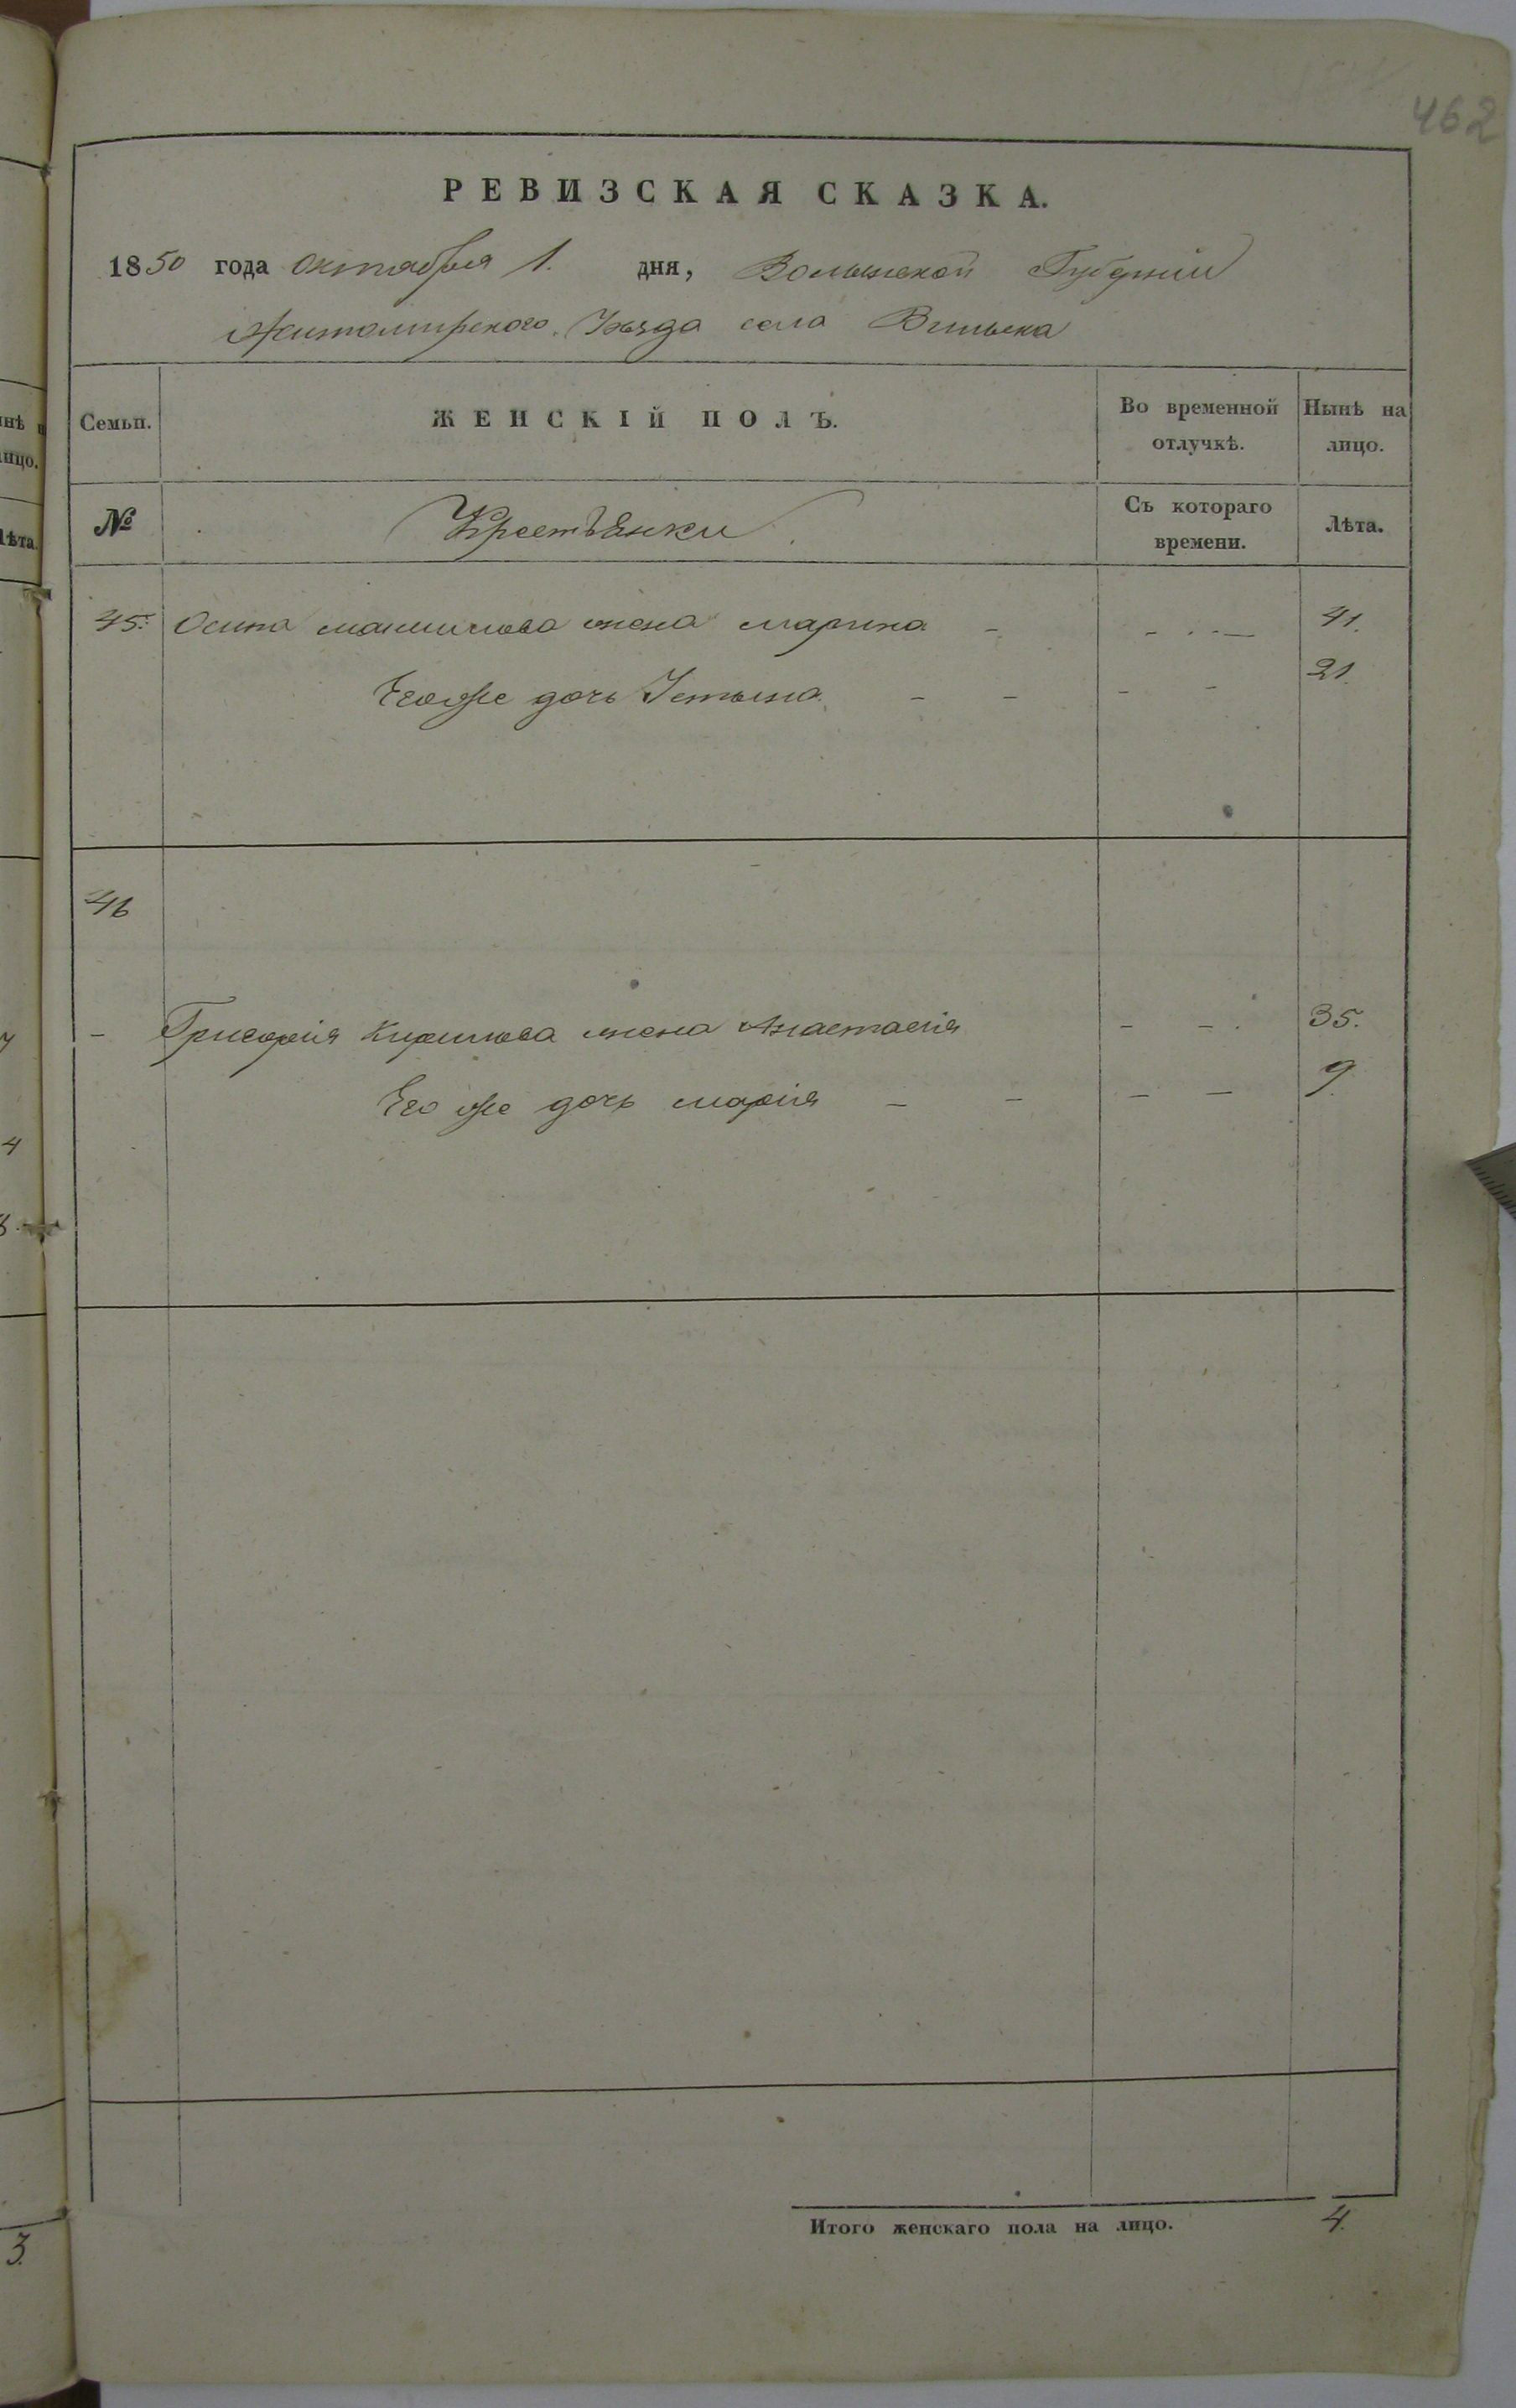 462
РЕВИЗСКАЯ СКАЗКА.
1850 года октября 1. дня, Волынской Губерніи
Житомирскаго Уѣзда села Вильска
Семьи. ЖЕНСКІЙ ПОЛЪ. Во временной отлучкѣ. Нынѣ на лицо.
№ Крестьянки Съ котораго времени. Лѣта.
45. Осипа максимова жена марина - - - 41.
Егоже дочь Устына - - - - 21.
46
- Григорія Кирилова жена Анастасія - - 35.
Его же дочь марія - - - - 9.
Итого женскаго пола на лицо. 4.
лицо.
лѣта.
4
3.